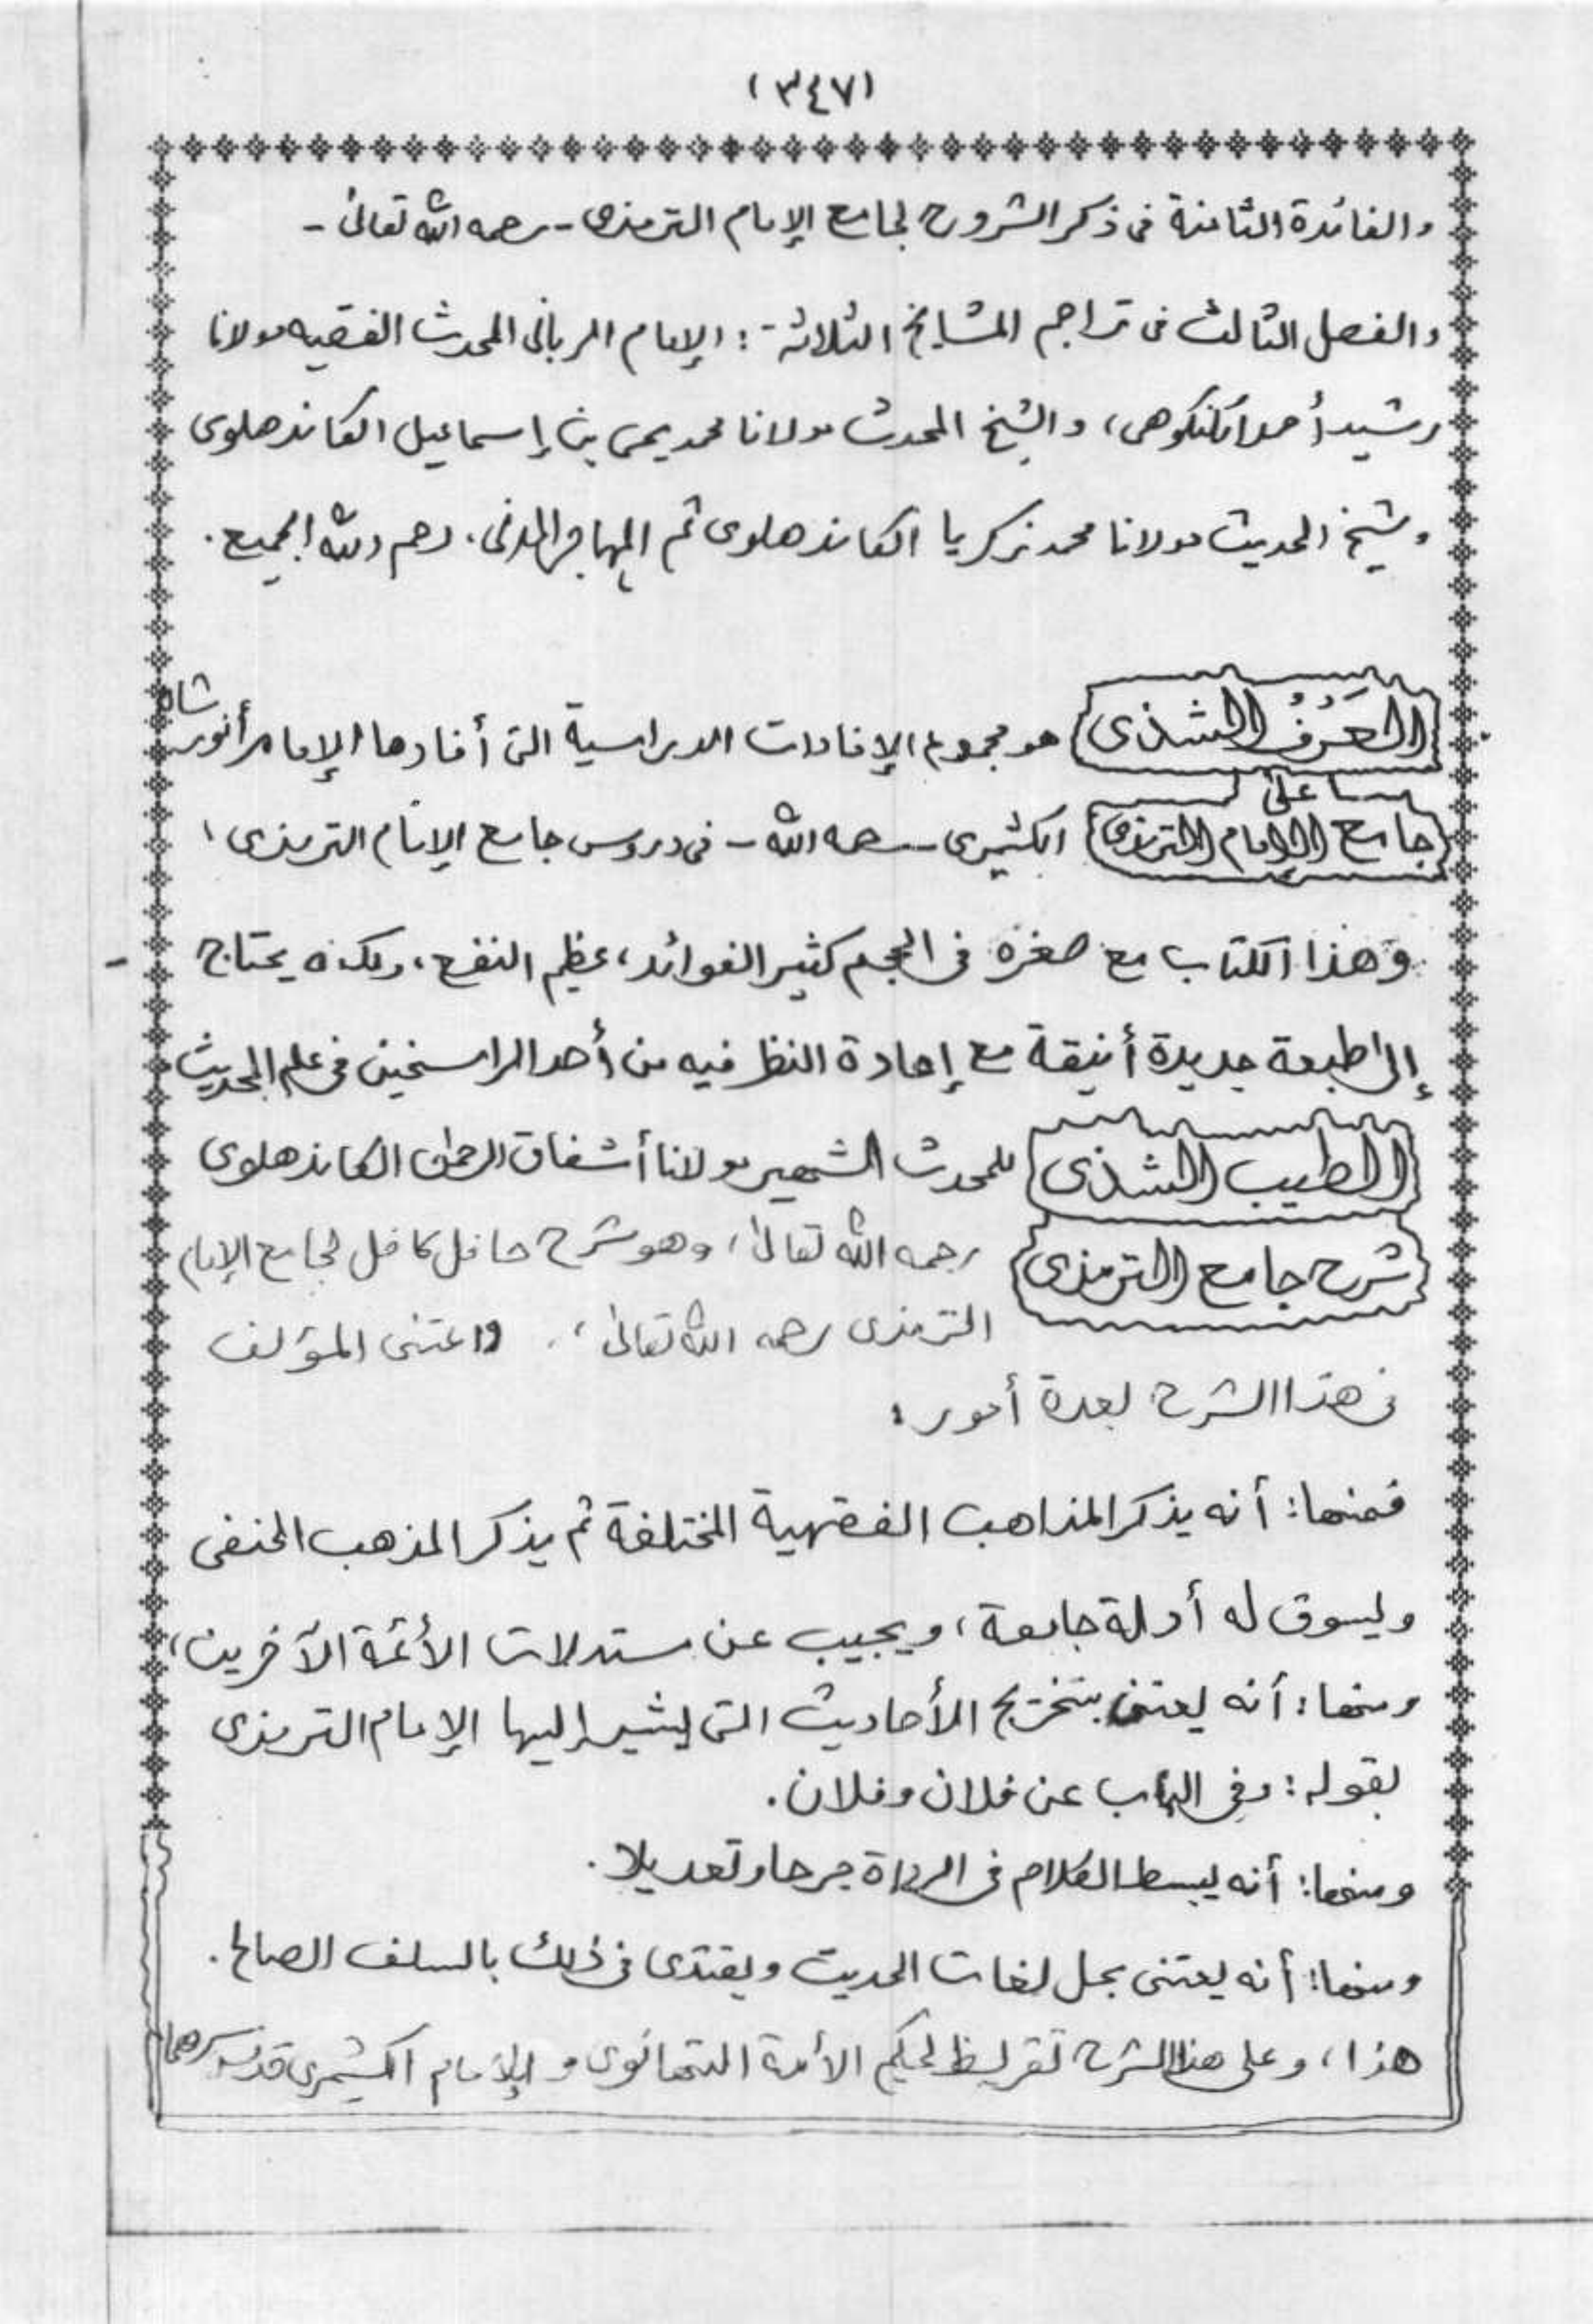 (٣٤٧)
والفائدة الثامنة فى ذكر الشروح لجامع الإمام الترمذى - رحمه الله تعالىٰ -
والفصل الثالث فى تراجم المشايخ الثلاثة: الإمام الربانى المحدث الفقيه مولانا
رشيد أحمد الكنكوهى، والشيخ المحدث مولانا محمد يحيى بن إسماعيل الكاندهلوى
وشيخ الحديث مولانا محمد زكريا الكاندهلوى ثم المهاجر المدنى، رحم الله الجميع.
العَرْفُ الشذى هو مجموع الإفادات الدراسية التى أفادها الإمام أنور شاه
على
جامع الإمام الترمذى الكشميرى - رحمه الله - فى دروس جامع الإمام الترمذى،
وهذا الكتاب مع صغره فى الحجم كثير الفوائد، عظيم النفع، ولكنه يحتاج
إلى طبعة جديدة أنيقة مع إعادة النظر فيه من أحد الراسخين فى علم الحديث
الطيب الشذى للمحدث الشهير مولانا أشفاق الرحمٰن الكاندهلوى
شرح جامع الترمذى رحمه الله تعالىٰ، وهو شرح حافل كافل لجامع الإمام
الترمذى رحمه الله تعالىٰ، واعتنى المؤلف
فى هذا الشرح بعدة أمور:
فمنها: أنه يذكر المذاهب الفقهية المختلفة ثم يذكر المذهب الحنفى
ويسوق له أدلة جامعة، ويجيب عن مستدلات الأئمة الآخرين،
ومنها: أنه يعتنى بتخريج الأحاديث التى يشير إليها الإمام الترمذى
بقوله: وفى الباب عن فلان وفلان.
ومنها: أنه يبسط الكلام فى الرواة جرحا وتعديلا.
ومنها: أنه يعتنى بحل لغات الحديث ويقتدى فى ذلك بالسلف الصالح.
هذا، وعلى هذا الشرح تقريظ لحكيم الأمة التهانوى والإمام الكشميرى قدس سرهما